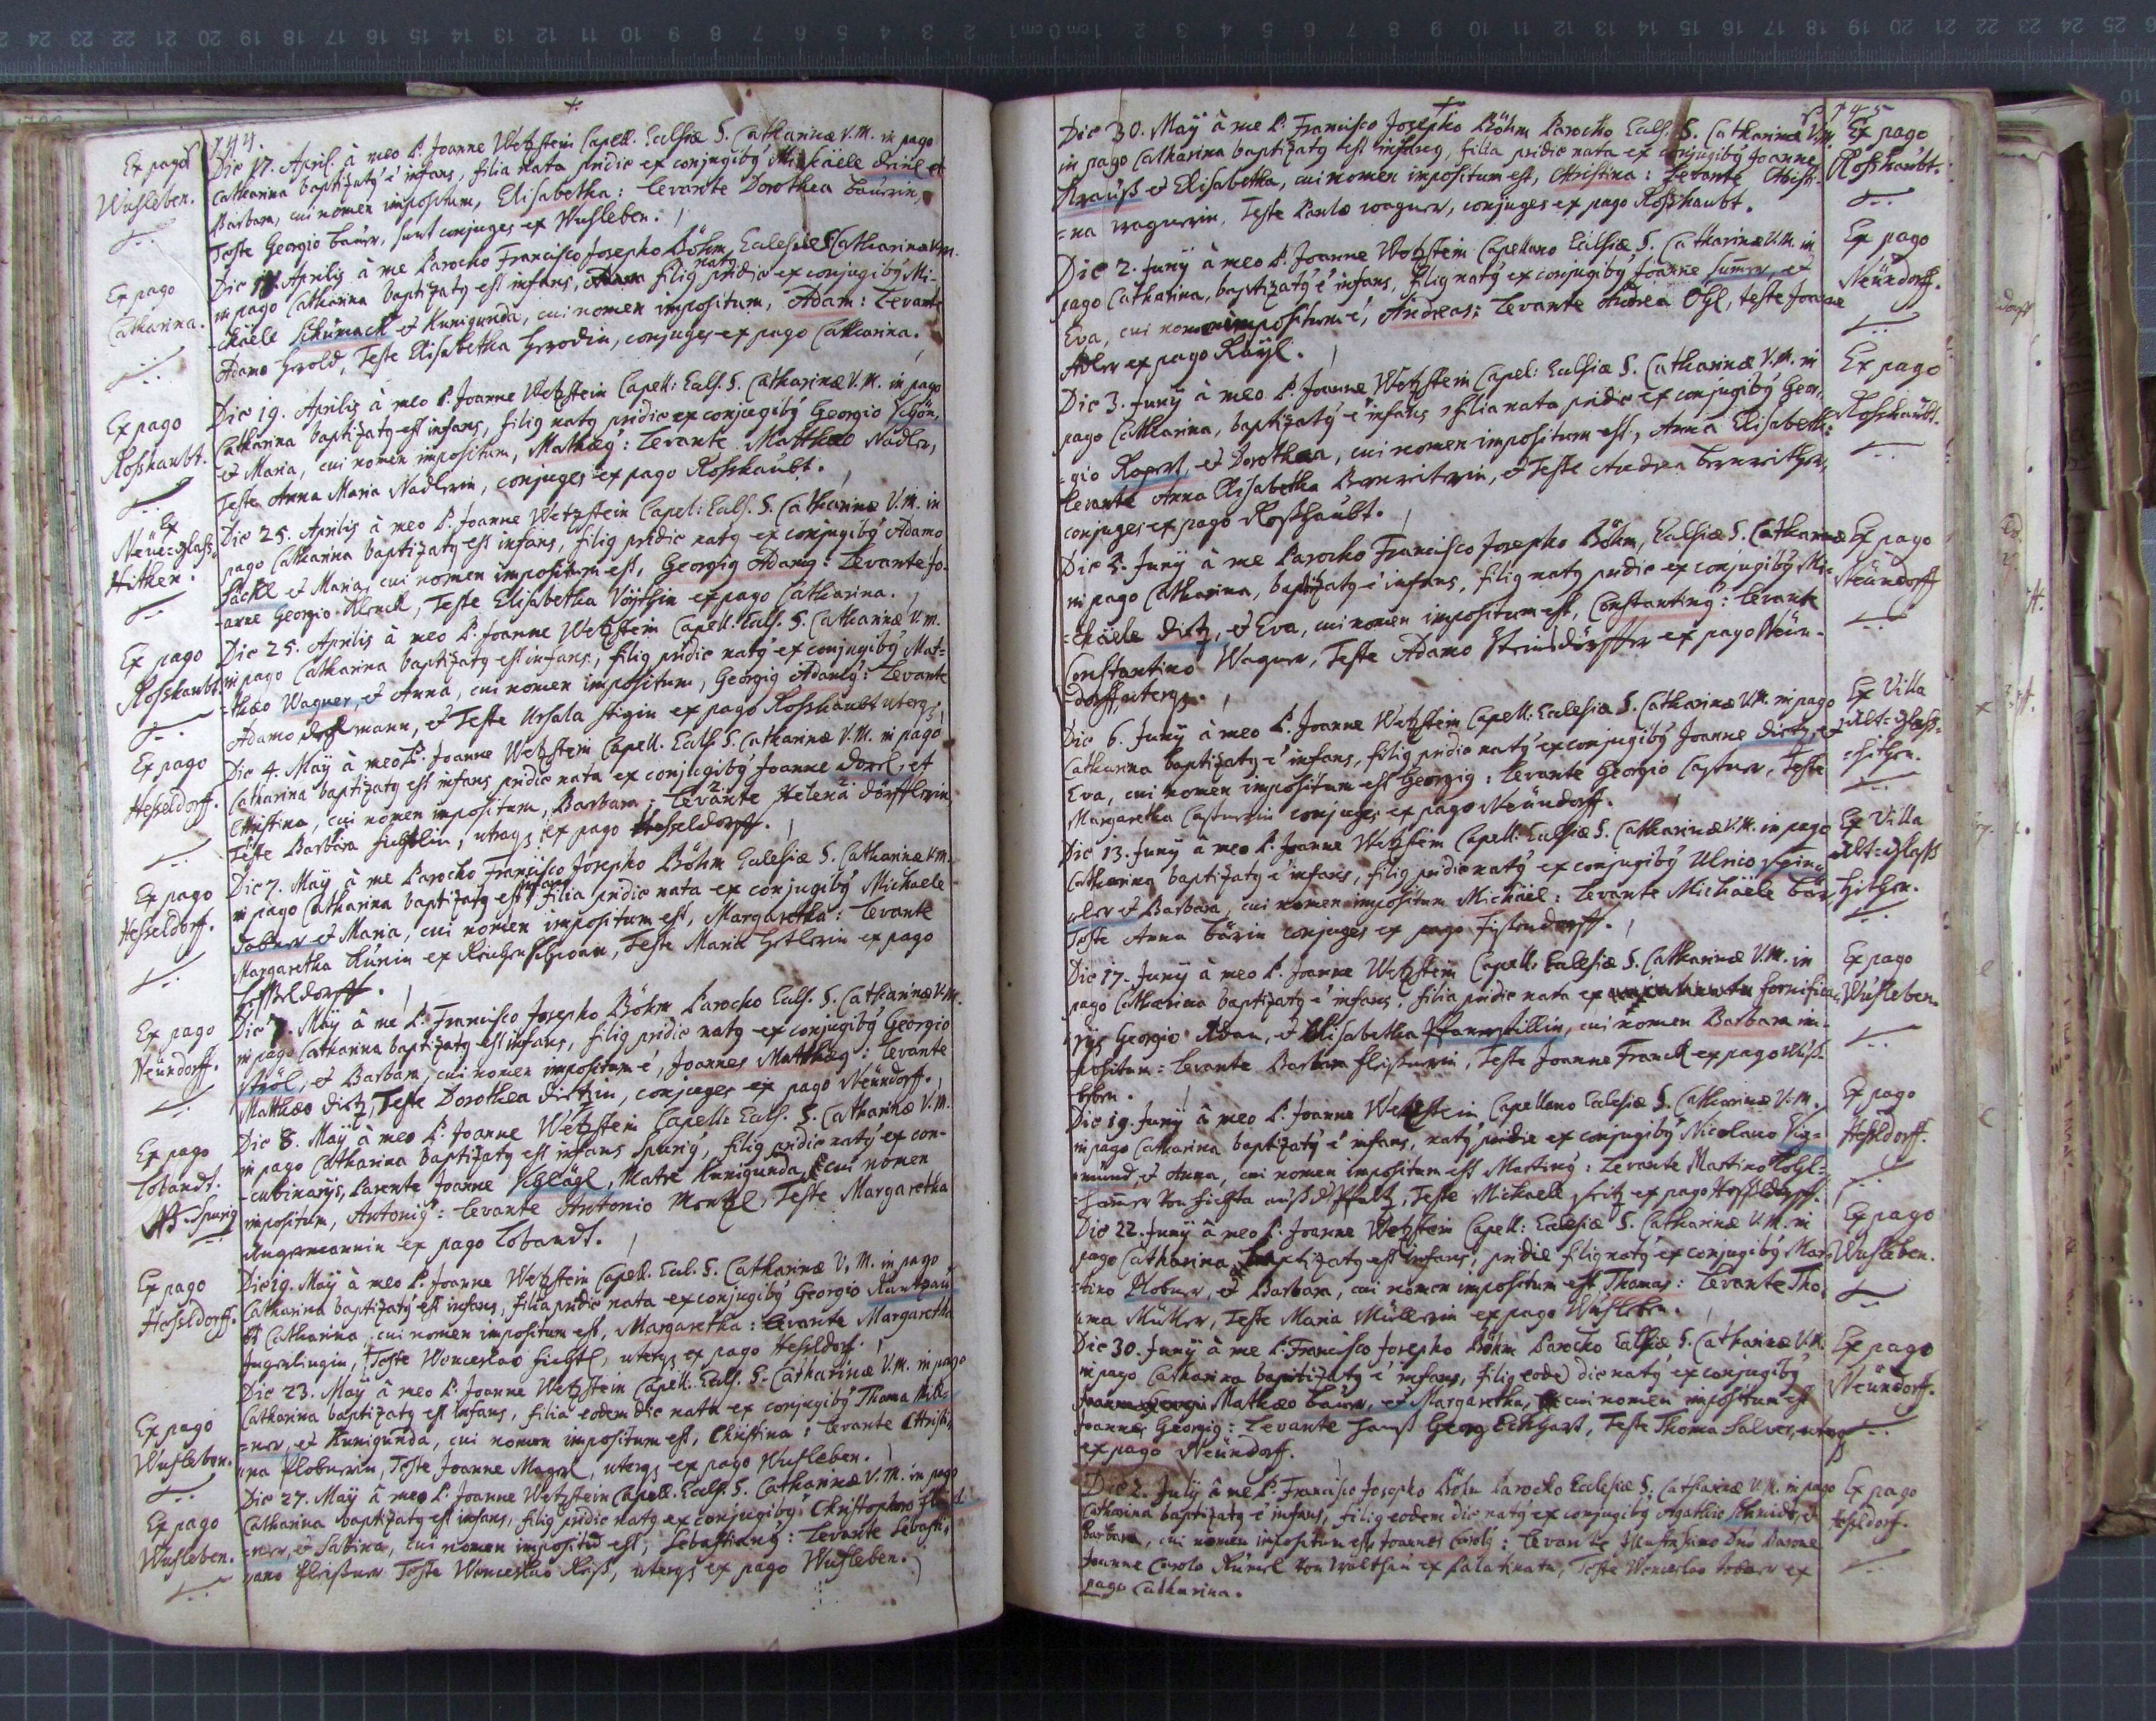 744.
Ex pago
Wusleben.
Die 17. April. à meo P. Joanne Wetzstein Capell. Eccl̃siæ S. Catharinæ V.M. in pago
Catharina baptizatꝰ ẽ infans, filia nata pridie ex conjugibꝰ Michäele et
Barbara, cui nomen impositum, Elisabetha: Levante Dorothea Baürin,
Teste Georgio Baür, sunt conjuges ex Wusleben.
Ex pago
Catharina.
Die Aprilis à me Parocho Francisco Josepho Böhm, Ecclesiæ S. Catharinæ V.M.
in pago Catharina baptizatꝰ est infans, filiꝰ natꝰ pridie ex conjugibꝰ Mi-
-chäele Schümack et Kunigunda, cui nomen impositum, Adam: Levante
Adamo Herold, Teste Elisabetha, conjuges ex pago Catharina.
Ex pago
Rosshaubt.
Die 19. Aprilis à meo P. Joanne Wetzstein Capell: Eccls. S. Catharinæ V.M. in pago
Catharina baptizatꝰ est infans, filiꝰ natꝰ pridie ex conjugibꝰ Georgio Schön,
et Maria, cui nomen impositum, Mathæꝰ: Levante Matthæo Nadler,
Teste Anna Maria Nadlerin, conjuges ex pago Rosshaubt.
Ex
Neüe=Glass
Hithen.
Die 25. Aprilis à meo P. Joanne Wetzstein Capel: Eccls. S. Catharinæ V.M. in
pago Catharina baptizatꝰ est infans, filiꝰ pridie natꝰ ex conjugibꝰ Adamo
Säckl et Maria, cui nomen impositum est, Georgiꝰ Adamꝰ: Levante Jo-
-anne Georgio Klenck, Teste Elisabetha Voÿthin ex pago Catharina.
Ex pago
Rosshaubt.
Die 25. Aprilis à meo P. Joanne Wetzstein Capell. Eccls. S. Catharinæ V.M.
in pago Catharina baptizatꝰ est infans, filiꝰ pridie natꝰ ex conjugibꝰ Mat-
-thæo Wagner, et Anna, cui nomen impositum, Georgiꝰ Adamꝰ: Levante
Adamo mann, et Teste Ursala ex pago Rosshaubt uterqꝫ
Ex pago
Hesseldorff.
Die 4. Maÿ à meo P. Joanne Wetzstein Capell. Eccls. S. Catharinæ V.M. in pago
Catharina baptizatꝰ est infans pridie nata ex conjugibꝰ Joanne Dorrl, et
Christina, cui nomen impositum, Barbara: Levante Helena Dörfflerin
Teste Barbara Fichtlin, utraqꝫ ex pago Hesseldorff.
Ex pago
Hesseldorff.
Die 7. Maÿ à me Parocho Francisco Josepho Böhm Ecclesiæ S. Catharinæ V.M.
in pago Catharina baptizatꝰ est infans filia pridie nata ex conjugibꝰ Michaele
Dobner et Maria, cui nomen impositum est, Margaretha: Levante
Margaretha Künin ex, Teste Maria ex pago
Hesseldorff.
Ex pago
Neündorff.
Die 7. Maÿ à me P. Francisco Josepho Böhm Parocho Eccls. S. Catharinæ V.M.
in pago Catharina baptizatꝰ est infans, filiꝰ pridie natꝰ ex conjugibꝰ Georgio
Ströl, et Barbara, cui nomen impositum ẽ, Joannes Matthæꝰ: Levante
Matthæo Dietz, Teste Dorothea Dietzin, conjuges ex pago Neündorff.
Ex pago
Tobandt.
NB. Spuriꝰ
Die 8. Maÿ à meo P. Joanne Wetzstein Capell: Eccls. S. Catharinæ V.M.
in pago Catharina baptizatꝰ est infans Spuriꝰ, filiꝰ pridie natꝰ ex con-
-cubinarijs, Parente Joanne Schlägl, Matre Kunigunda, cui nomen
impositum, Antoniꝰ: Levante Antonio Menzl, Teste Margaretha
Angermannin ex pago Tobandt.
Ex pago
Hesseldorff.
Die 19. Maÿ à meo P. Joanne Wetzstein Capell. Eccl. S. Catharinæ V.M. in pago
Catharina baptizatꝰ est infans, filia pridie nata ex conjugibꝰ Georgio
et Catharina, cui nomen impositum est, Margaretha: Levante Margaretha
, Teste Wenceslao Fichtl, uterqꝫ ex pago Hesseldorf.
Ex pago
Wusleben.
Die 23. Maÿ à meo P. Joanne Wetzstein Capell. Eccls. S. Catharinæ V.M. in pago
Catharina baptizatꝰ est infans, filia eodem die nata ex conjugibꝰ Thoma
=ner, et Kunigunda, cui nomen impositum est, Christina: Levante Christi-
na Klobnerin, Teste Joanne Magerl, uterqꝫ ex pago Wusleben.
Ex pago
Wusleben.
Die 27. Maÿ à meo P. Joanne Wetzstein Capell. Eccls. S. Catharinæ V.M. in pago
Catharina baptizatꝰ est infans, filiꝰ pridie natꝰ ex conjugibꝰ Christophoro
=ner, et Sabina, cui nomen impositũ est, Sebastianꝰ: Levante Sebasti-
ano Fleissner Teste Wenceslao, uterqꝫ ex pago Wusleben.
745
Die 30. Maÿ à me P. Francisco Josepho Böhm Parocho Eccls. S. Catharinæ V.M.
in pago Catharina baptizatꝰ est infans, filia pridie nata ex conjugibꝰ Joanne
Krauss et Elisabetha, cui nomen impositum est, Christina: Levante Christi-
=na wagnerin, Teste Paulo wagner, conjuges ex pago Rosshaubt.
Ex pago
Rosshaubt.
Die 2. Junÿ à meo P. Joanne Wetzstein Capellano Eccl̃siæ S. Catharinæ V.M. in
pago Catharina, baptizatꝰ ẽ infans, filiꝰ natꝰ ex conjugibꝰ Joanne et
Eva, cui nomen impositum ẽ, Andreas: Levante Andrea, teste Joanne
Adler ex pago.
Ex pago
Neündorff.
Die 3. Junÿ à meo P. Joanne Wetzstein Capel: Eccl̃siæ S. Catharinæ V.M. in
pago Catharina, baptizatꝰ ẽ infans filia nata pridie ex conjugibꝰ Geor-
=gio et Dorothea, cui nomen impositum est, Anna Elisabeth:
Levante Anna Elisabetha Bernreiterin, et Teste Andrea Bernreither,
conjuges ex pago Rosshaubt.
Ex pago
Rosshaubt.
Die 5. Junÿ à me Parocho Francisco Josepho Böhm, Eccl̃siæ S. Catharinæ
in pago Catharina, baptizatꝰ ẽ infans, filiꝰ natꝰ pridie ex conjugibꝰ Mi-
=chäele Dietz, et Eva, cui nomen impositum est, Constantinꝰ: Levante
Constantino Wagner, Teste Adamo Steinsdörffer ex pago Neün-
dorff, uterqꝫ.
Ex pago
Neündorff
Die 6. Junÿ à meo P. Joanne Wetzstein Capell: Ecclesiæ S. Catharinæ V.M. in pago
Catharina baptizatꝰ ẽ infans, filiꝰ pridie natꝰ ex conjugibꝰ Joanne Dietz, et
Eva, cui nomen impositum est Georgiꝰ: Levante Georgio Castner, Teste
Margaretha Castnerin conjuges ex pago Neündorff.
Ex Villa
Alt=Glass=
=hithen.
Die 13. Junÿ à meo P. Joanne Wetzstein Capell: Eccl̃siæ S. Catharinæ V.M. in pago
Catharina baptizatꝰ ẽ infans, filiꝰ pridie natꝰ ex conjugibꝰ Ulrico Speng-
=ler et Barbara, cui nomen impositum Michäel: Levante Michäele Bär,
Teste Anna Bärin conjuges ex pago.
Ex Villa
Alt=Glass
hithen.
Die 17. Junÿ à meo P. Joanne Wetzstein Capell: Ecclesiæ S. Catharinæ V.M. in
pago Catharina baptizatꝰ ẽ infans, filia pridie nata ex fornica-
rijs Georgio Adam, et Elisabetha, cui nomen Barbara im-
positum: Levante Barbara Fleissnerin, Teste Joanne Franck ex pago Wuss-
leben.
Ex pago
Wusleben.
Die 19. Junÿ à meo P. Joanne Wetzstein Capellano Ecclesiæ S. Catharinæ V.M.
in pago Catharina baptizatꝰ ẽ infans, natꝰ pridie ex conjugibꝰ Nicolauo Sig-
=mund, et Anna, cui nomen impositum est Martinꝰ: Levante Martino
von auss d Pfaltz, Teste Michaele Fritz ex pago Hesseldorff.
Ex pago
Hesseldorff.
Die 22. Junÿ à meo P. Joanne Wetzstein Capell: Ecclesiæ S. Catharinæ V.M. in
pago Catharina, baptizatꝰ est infans, pridie filiꝰ natꝰ ex conjugibꝰ Mar-
=tino Klobner, et Barbara, cui nomen impositum est Thomas: Levante Tho-
ma Müller, Teste Maria Müllerin ex pago Wusleben.
Ex pago
Wusleben.
Die 30. Junÿ à me P. Francisco Josepho Böhm Parocho Eccl̃siæ S. Catharinæ V.M.
in pago Catharina baptizatꝰ ẽ infans, filiꝰ eodẽ die natꝰ ex conjugibꝰ
Mathæo Baüer, et Margaretha, cui nomen impositum est
Joannes Georgiꝰ: Levante Hanss Georg Eckhart, Teste Thoma Salver, uterqꝫ
ex pago Neündorff.
Ex pago
Neündorff.
Die 2. Julÿ à me P. Francisco Josepho Böhm Parocho Ecclesiæ S. Catharinæ V.M. in pago
Catharina baptizatꝰ ẽ infans, filiꝰ eodem die natꝰ ex conjugibꝰ Agathio Schmidt, et
Barbara, cui nomen impositum est Joannes Carolꝰ: Levante Illustrissimo Dño Barone
Joanne Carolo von ex Palatinatu, Teste Wenceslao Dobner ex
pago Catharina.
Ex pago
Hesseldorf.